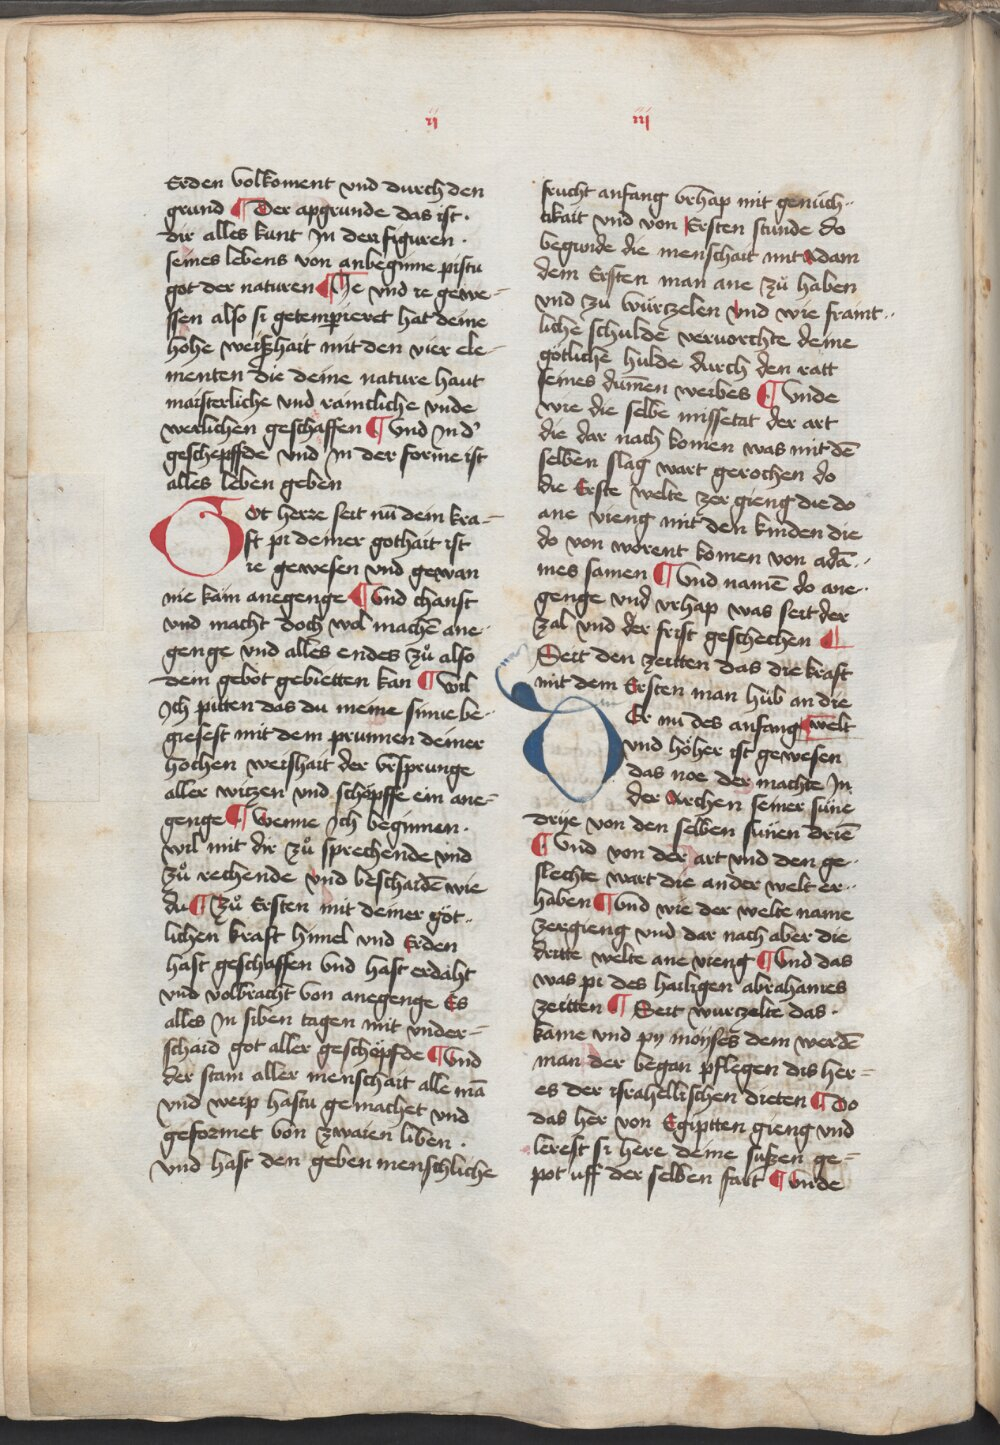 ij
iij
Erden volkoment vnd durch den
grund ¶ Der apgrunde das ist ·
dir alles kunt In den figuren ·
seines lebens von anbeginne pistu
got der naturen ¶ He vnd ie gewe-
ssen also si getempieret hat deine
hohe weißhait mit den vier ele-
menten die deine nature haut
maisterliche vnd raintliche vnde
werlichen geschaffen ¶ Vnd In d'
geschepffde vnd in der forme ist
alles leben geben
Got herre seit nu dem kra-
ft pi deiner gothait ist
ie gewesen vnd gewan
nie kain anegenge ¶ Vnd chanst
vnd macht doch wol machē ane-
genge vnd alles endes zů also
dein gebot gebietten kan ¶ Wil
Ich pitten das du meine sinne be-
giesest mit dem prunnen deiner
hochen weishait der vrsprunge
aller witzen vnd schöpffe ein ane-
genge ¶ Wenne Ich beginnen ·
wil mit dir zů sprechende vnd
zů rechende vnd beschaidē wie
du ¶ Zů Ersten mit deiner göt-
lichen kraft himel vnd Erden
hast geschaffen vnd hast erdaht
vnd volbracht von anegenge Es
alles In siben tagen mit vnder-
schaid got aller geschöpfde ¶ Vnd
der stam aller menschait alle mā
vnd weip hastu gemachet vnd
geformet von zwaien liben ·
vnd hast den geben menschliche
frucht anfang vrhap mit genüch-
tikait vnd von Ersten stunde do
begunde die menschait mit Adam
dem Ersten man ane zů haben
vnd zů würtzelen Vnd wie framt-
liche schulde veruorchte deine
götliche hulde durch den ratt
seines dumen weibes ¶ Vnde
wie die selbe missetat der art
die dar nach komen was mit dē
selben slag wart gerochen do
die Erste welte zer gieng die do
ane vieng mit den kinden die
do von worent komen von adā-
mes samen ¶ Vnd namē do ane-
genge vnd vrhap was seit der
zal vnd der frist geschechen ¶
Seit den zeitten das die kraft
mit dem Ersten man hüb an die
Er nu des anfang welt
vnd höher ist gewesen
das noe der machte In
der Archen seiner süne
drije von den selben sunen driē
¶ Vnd von der art vnd den ge-
slechte wart die ander welt er-
haben ¶ Vnd wie der welte name
zergieng vnd dar nach aber die
dritte welte ane vieng ¶ Vnd das
was pi des hailigen abrahames
zeitten ¶ Seit wurtzelte das ·
kame vnd py moijses dem werdē
man der began pflegen dis her-
es der israhellischen dieten ¶ Do
das her von Egiptten gieng vnd
lerest si here deine sußen ge-
pot uff der selben fart ¶ Vnde